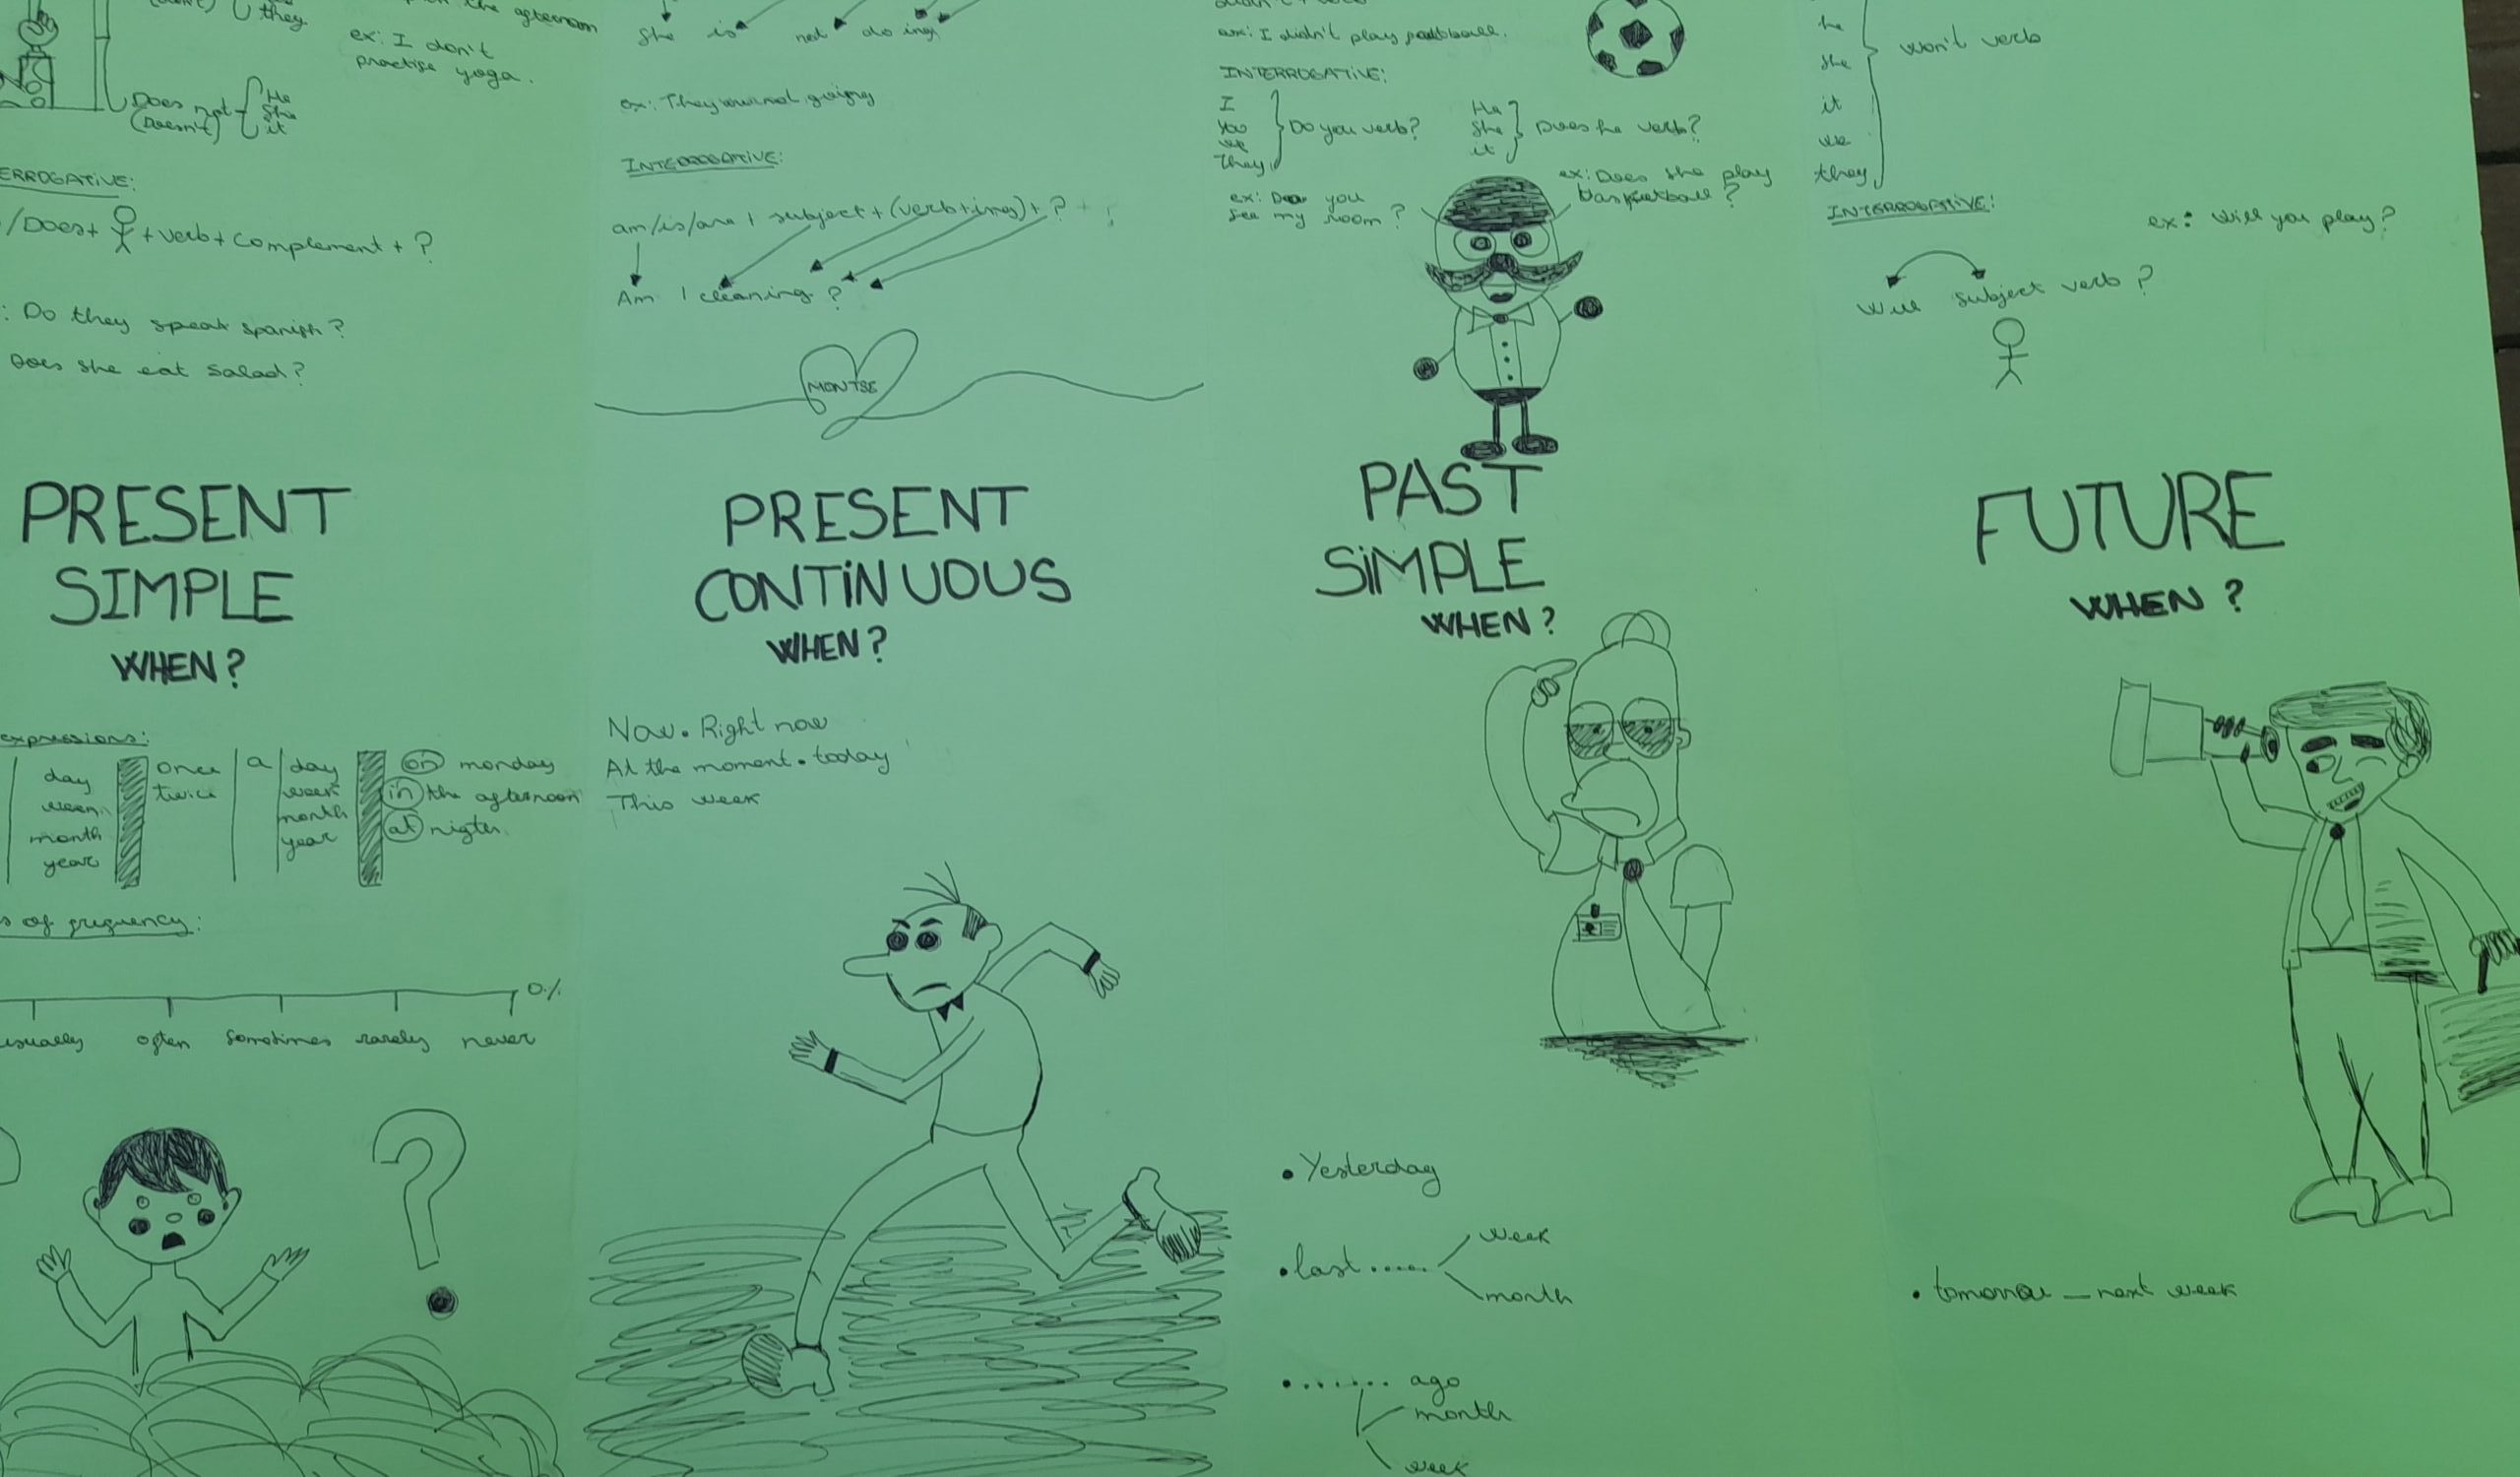 they
the afternoon
ex: I don't
practise yoga.
Does not
(Doesn't)
He
She
it
ERROGATIVE:
/Does+ +verb+complement+?
: Do they speak spanish?
Does she eat salad?
PRESENT
SIMPLE
WHEN?
expressions:
day
week
month
year
once
twice
a
day
week
month
year
on monday
in the afternoon
at nigth.
s of frequency:
0%
usually often sometimes rarely never
She is not do ing
ex: They not going
INTERROGATIVE:
am/is/are + subject + (verb+ing) + ?
Am I cleaning ?
MONTSE
PRESENT
CONTINUOUS
WHEN?
Now. Right now
At the moment. today
This week
ex: I didn't play
INTERROGATIVE:
I
You
we
They
Do you verb?
He
She
it
Does he verb?
ex: Do you
see my room?
ex: Does she play
basketball?
PAST
SIMPLE
WHEN?
• Yesterday
• last ..... week
month
• ....... ago
month
week
he
she
it
we
they
won't verb
INTERROGATIVE:
ex: Will you play?
Will subject verb?
FUTURE
WHEN?
• tomorrow — next week